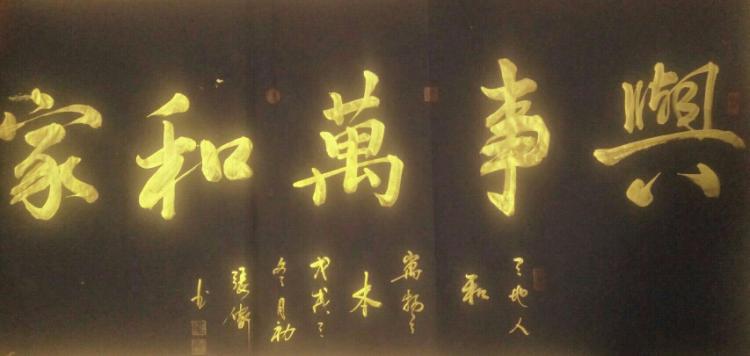 家和萬事興
天地人
和
萬物之
本
戊戌之
冬月初
張
书